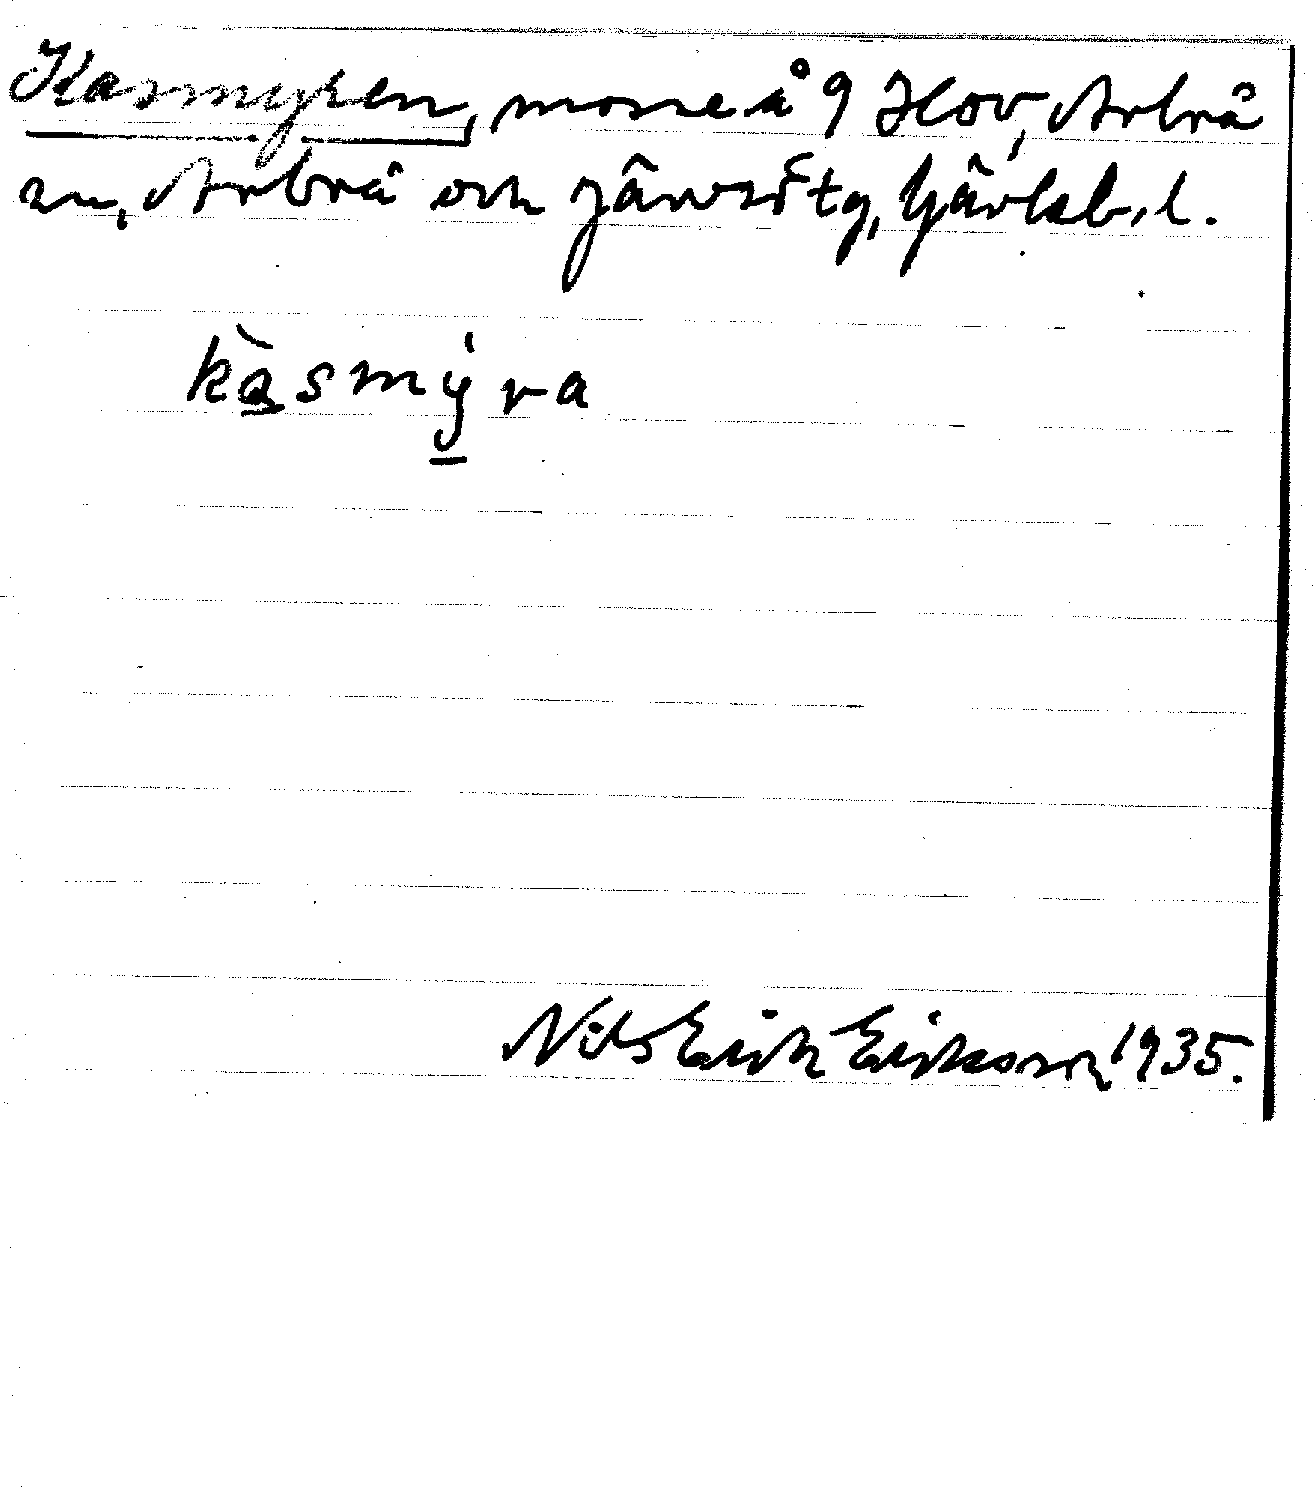 Kasmyren, mosse å 9 Hov, Arbrå
sn, Arbrå och Järvsö tg, Gävleb. l.
kàsmy̍ra
Nils Erik Eriksson 1935.